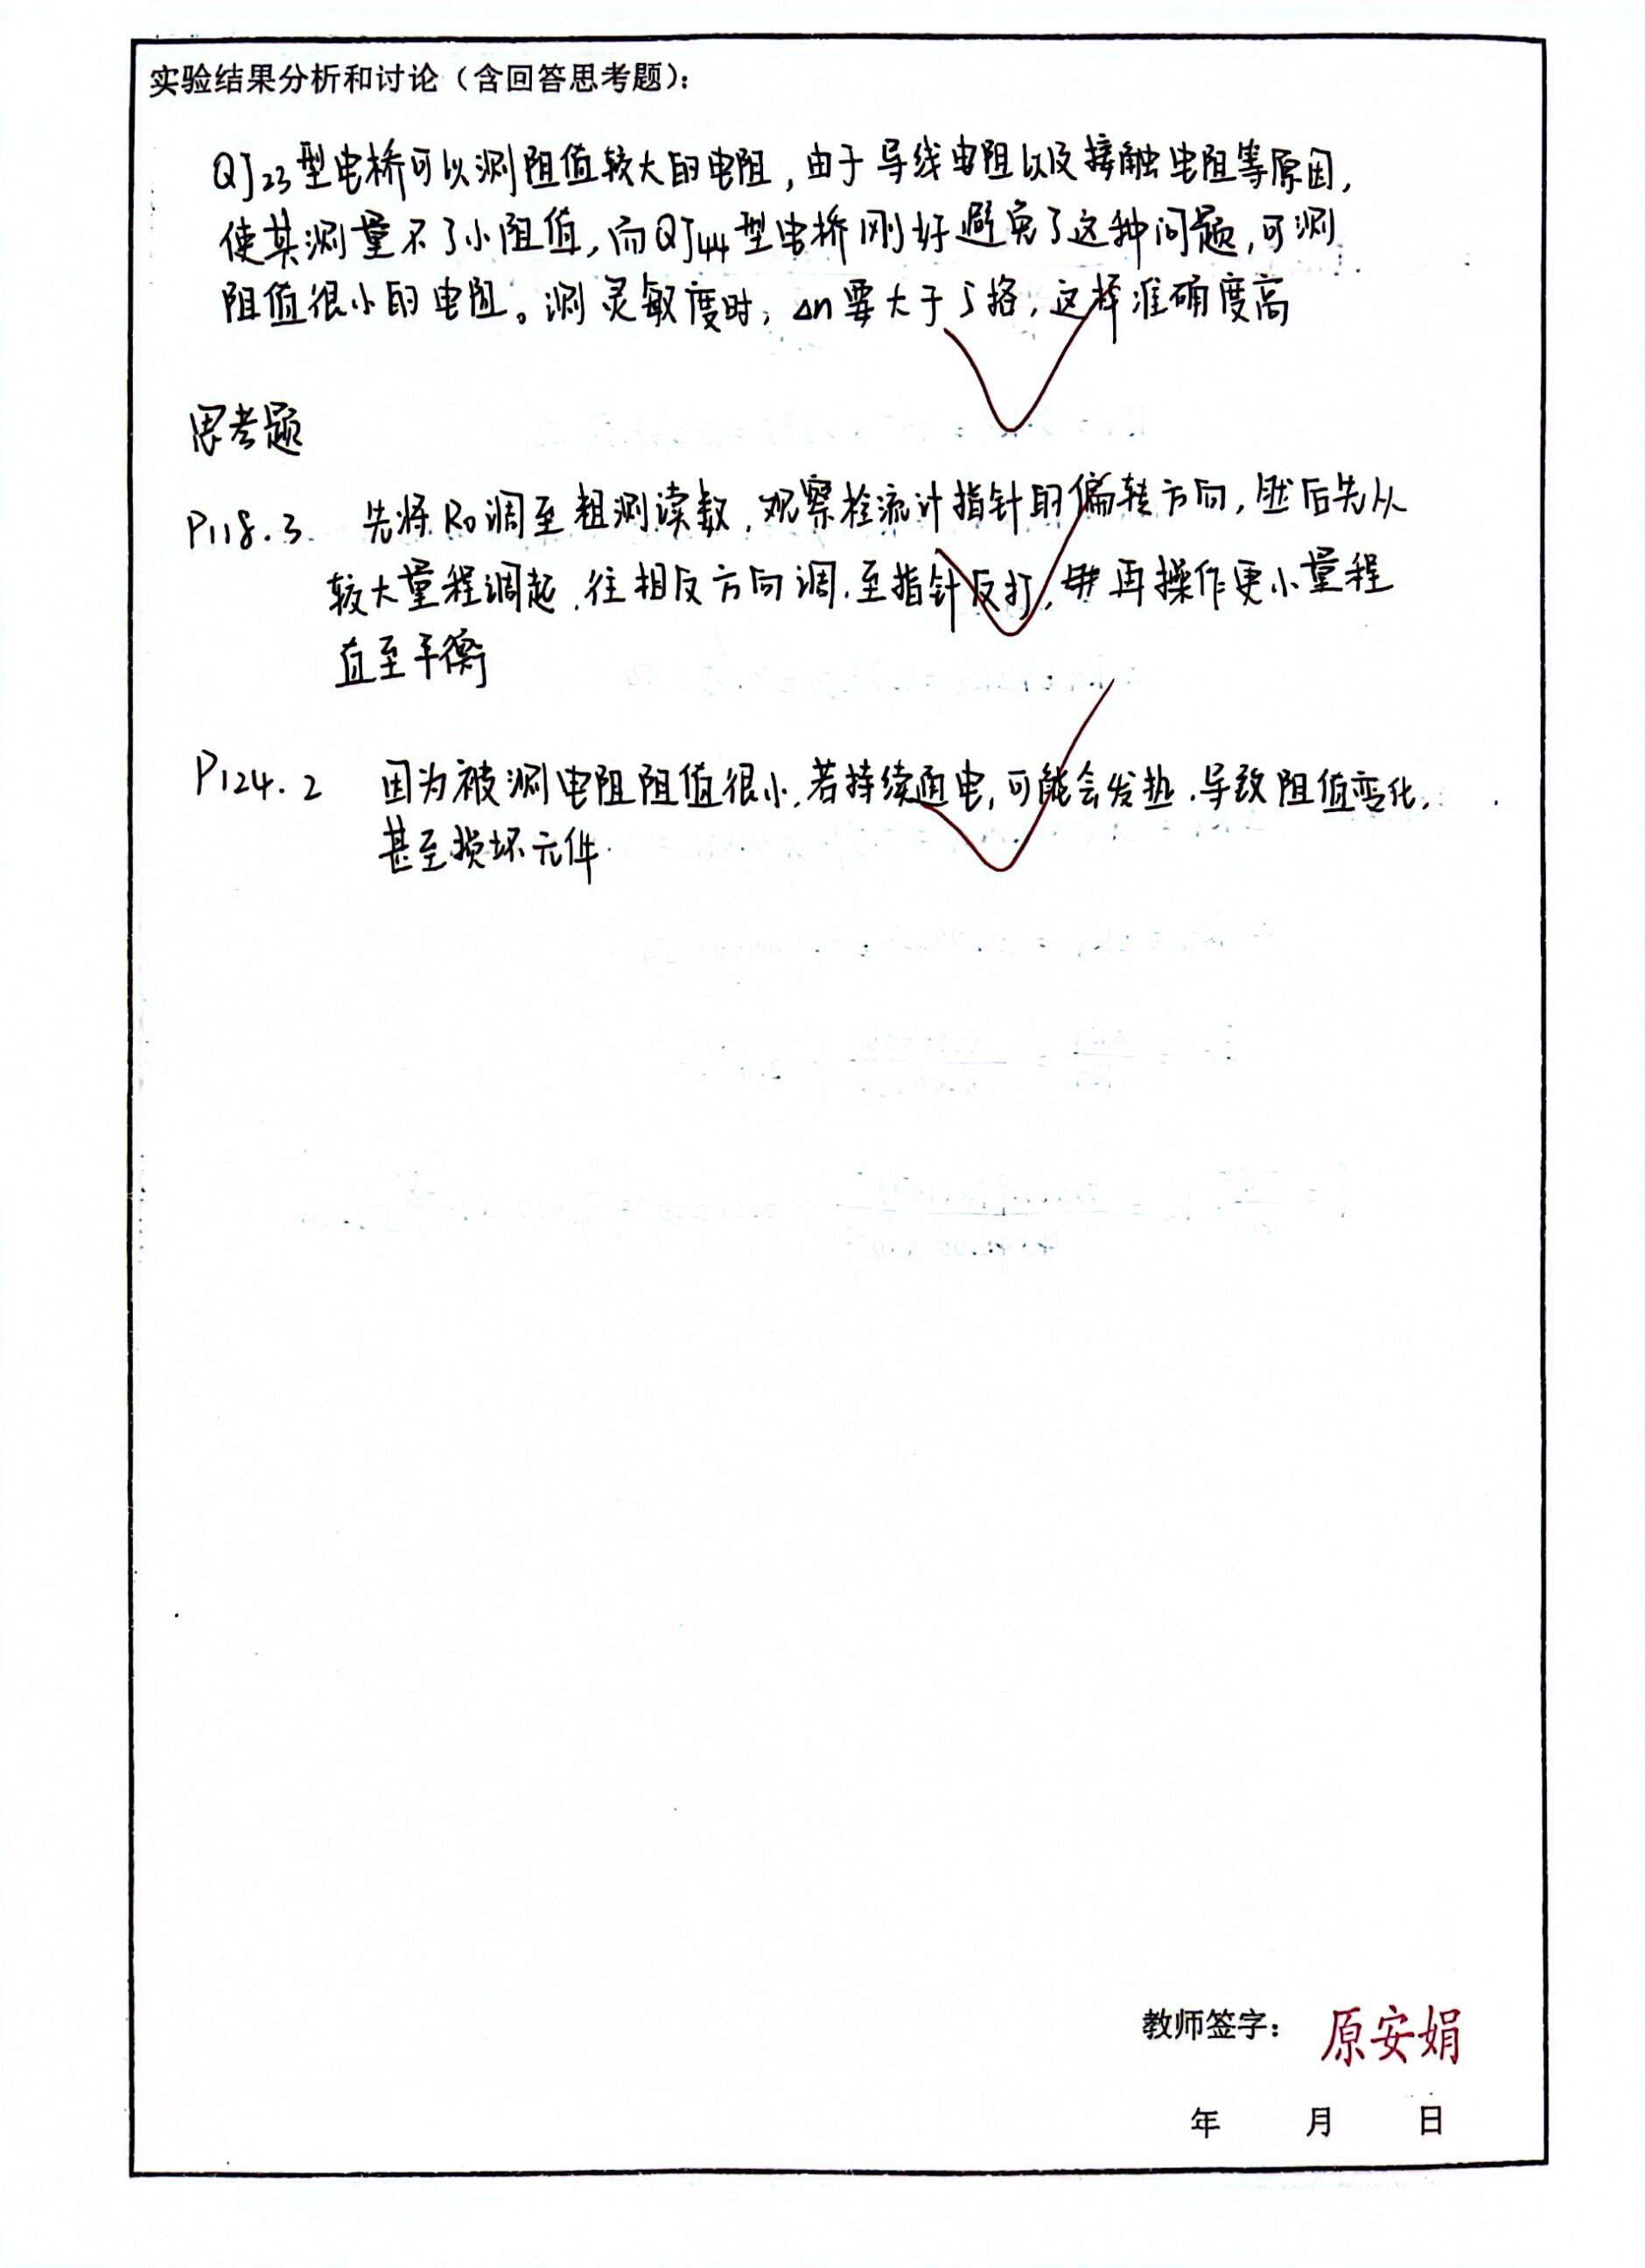 实验结果分析和讨论（含回答思考题）：
QJ23型电桥可以测阻值较大的电阻，由于导线电阻以及接触电阻等原因，
使其测量不了小阻值，而QJ44型电桥刚好避免了这种问题，可测
阻值很小的电阻。测灵敏度时，Δn要大于5格，这样准确度高
思考题
P118.3 先将R0调至粗测读数，观察检流计指针的偏转方向，然后先从
较大量程调起，往相反方向调，至指针反打，再操作更小量程
直至平衡
P124.2 因为被测电阻阻值很小，若持续通电，可能会发热，导致阻值变化，
甚至损坏元件
教师签字： 原安娟
年 月 日